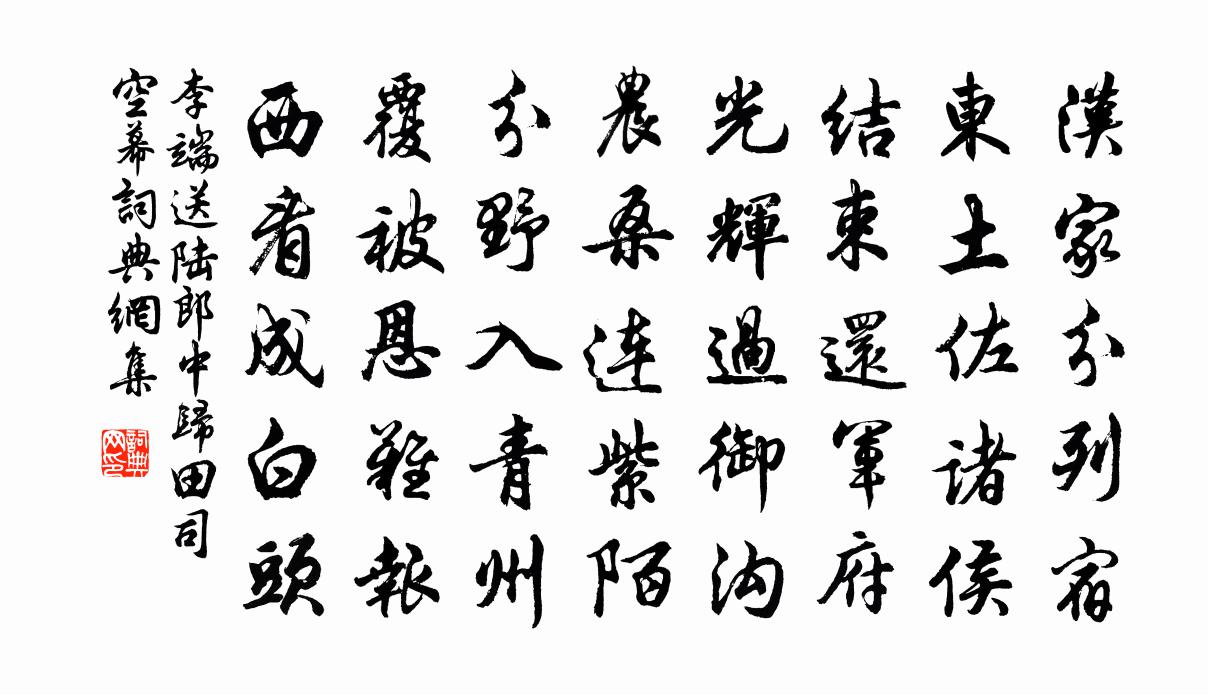 漢家分列宿
東土佐諸侯
結束還軍府
光輝過御沟
農桑連紫陌
分野入青州
覆被恩難報
西看成白頭
李端送陆郎中歸田司
空幕詞典網集
詞典网印